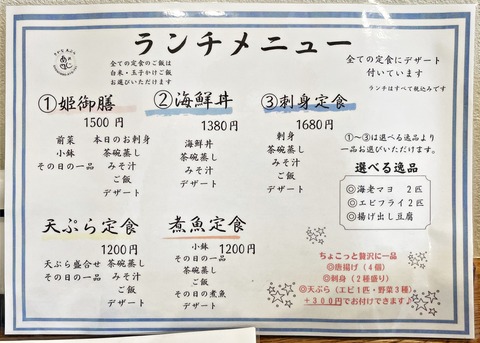 ランチメニュー
全ての定食のご飯は
白米・玉子かけご飯
お選びいただけます
全ての定食にデザート
付いています
ランチはすべて税込みです
①姫御膳
1500円
前菜 本日のお刺身
小鉢 茶碗蒸し
その日の一品 みそ汁
ご飯
デザート
②海鮮丼
1380円
海鮮丼
茶碗蒸し
みそ汁
デザート
③刺身定食
1680円
刺身
茶碗蒸し
みそ汁
ご飯
デザート
①〜③は選べる逸品より
一品お選びいただけます。
選べる逸品
◎海老マヨ 2匹
◎エビフライ 2匹
◎揚げ出し豆腐
天ぷら定食
1200円
天ぷら盛合せ 茶碗蒸し
その日の一品 みそ汁
ご飯
デザート
煮魚定食
1200円
小鉢
その日の一品
茶碗蒸し
ご飯
みそ汁
その日の煮魚
デザート
ちょこっと贅沢に一品
◎唐揚げ(4個)
◎刺身(2種盛り)
◎天ぷら(エビ1匹・野菜3種)
+300円でお付けできます♪